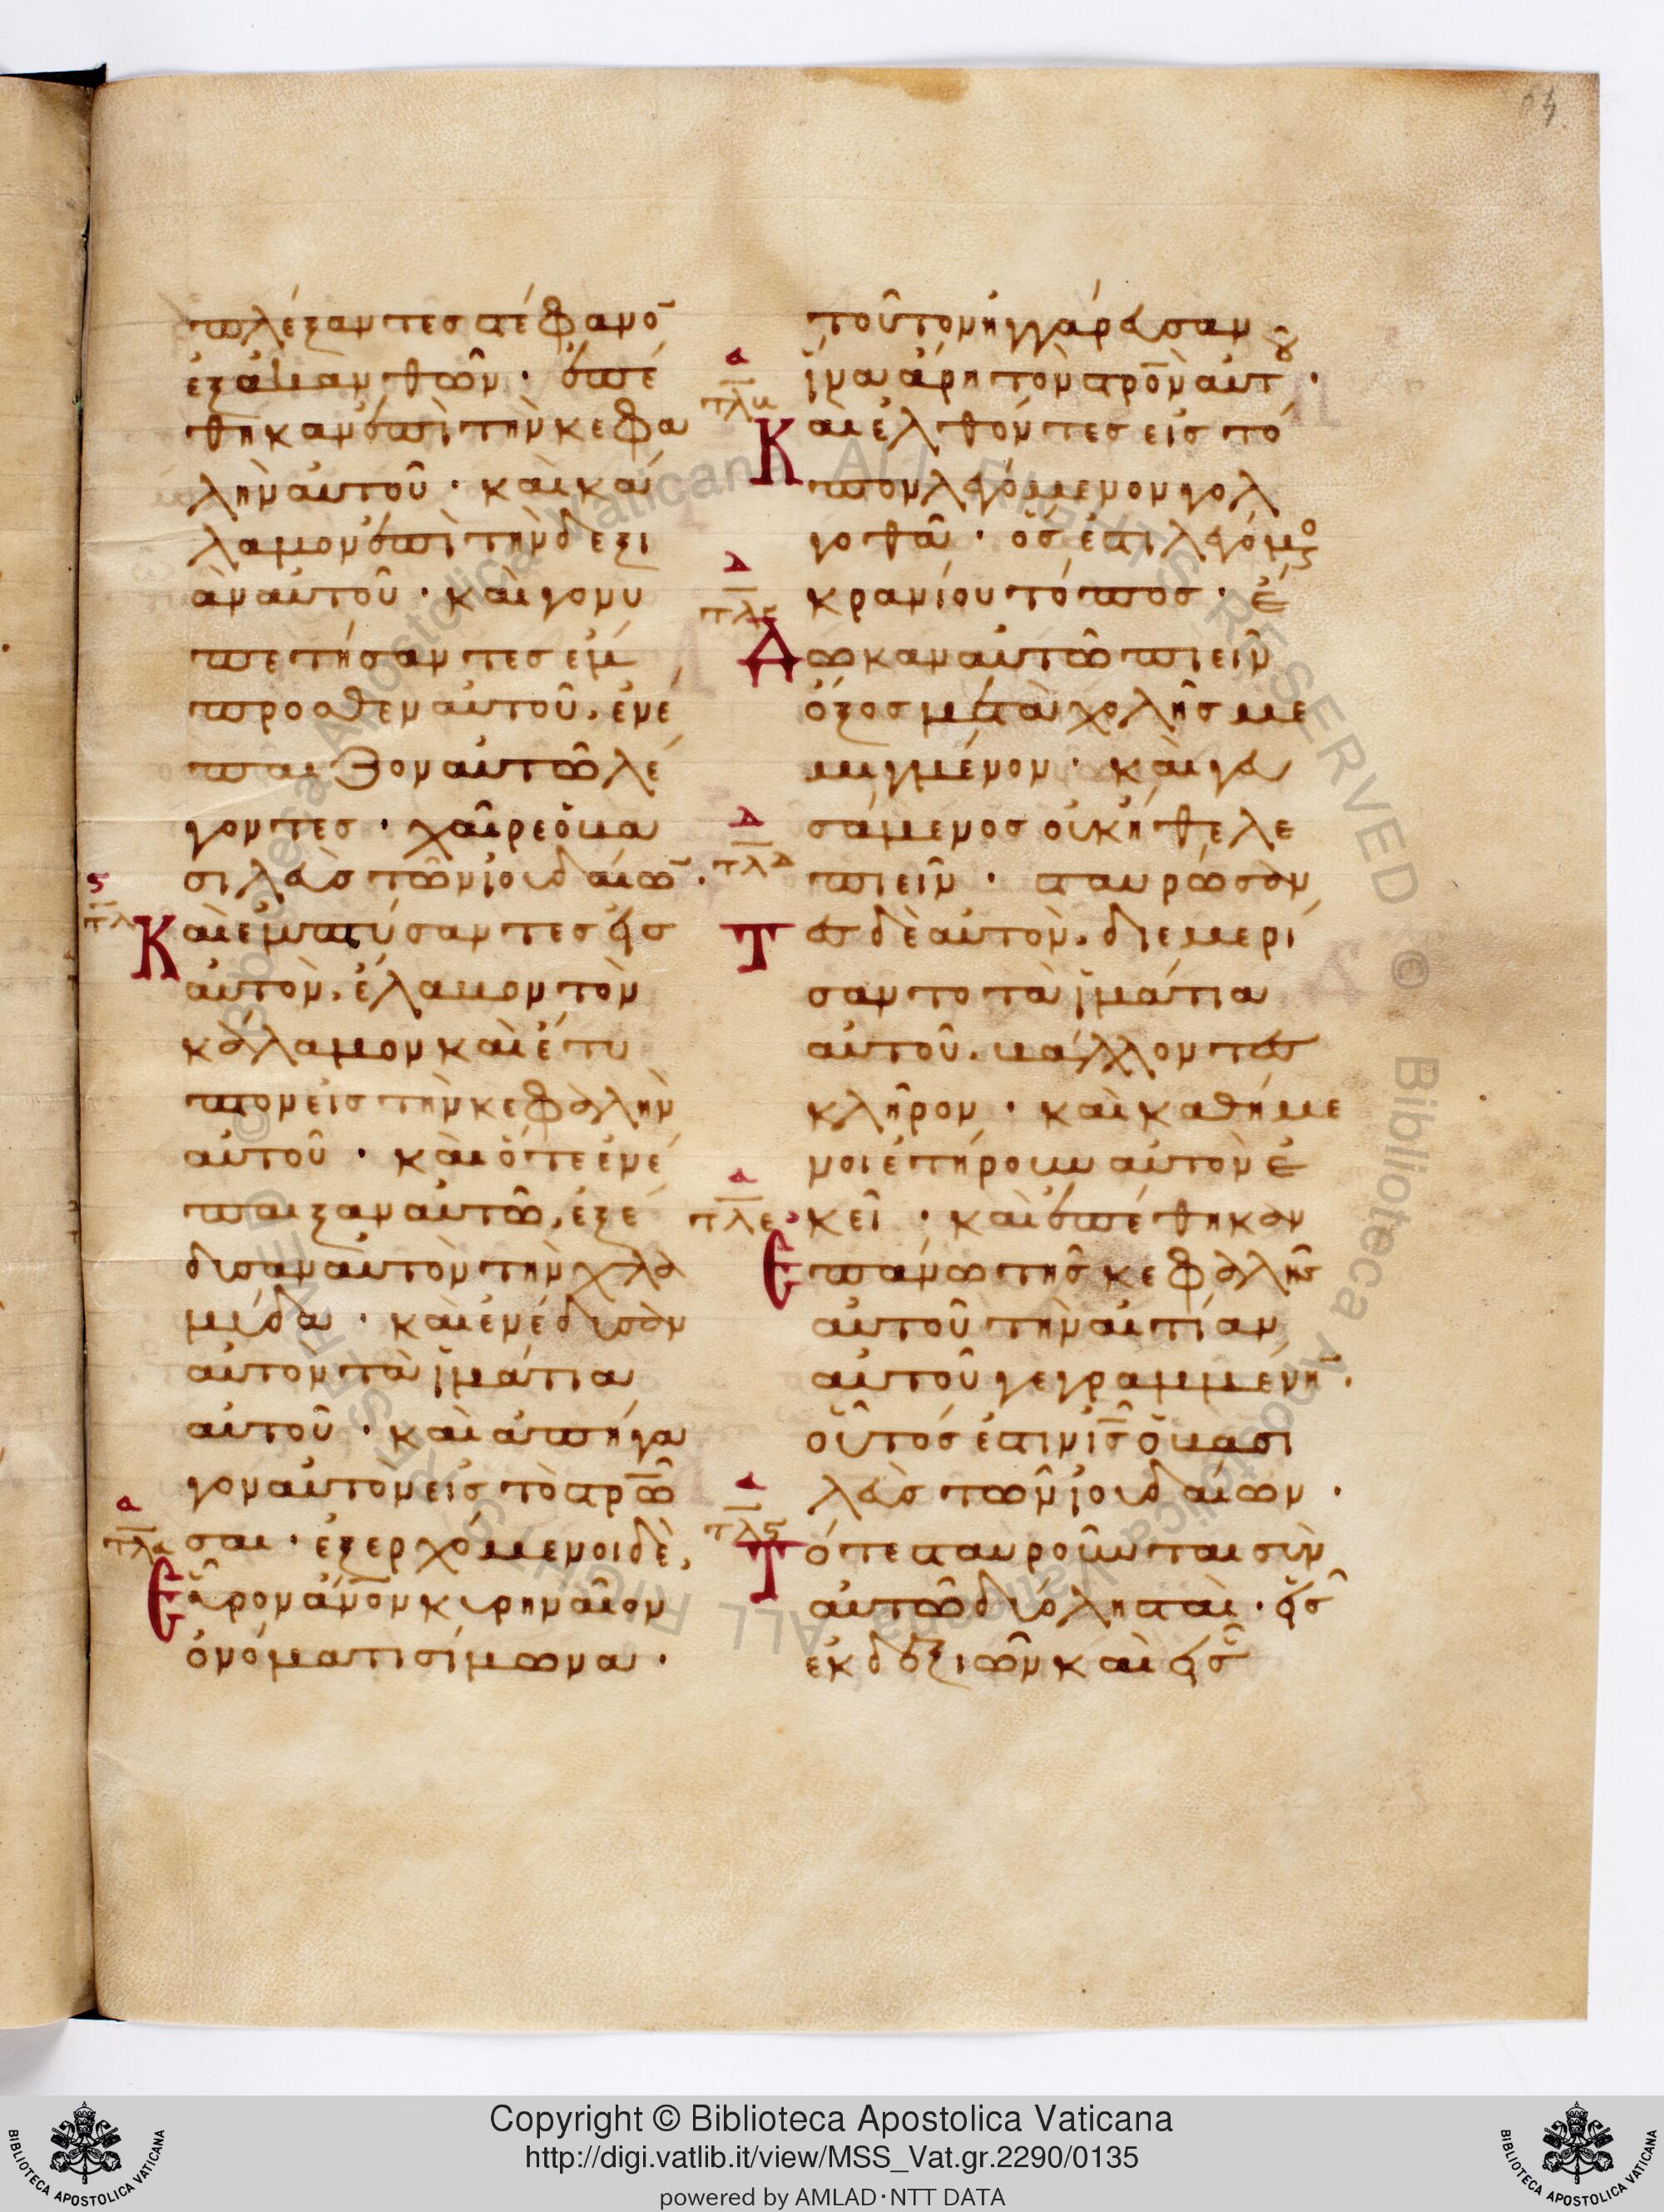 πλέξαντες στέφανο̅
ἐξ ἀκανθῶν · ἐπέ
θηκαν ἐπὶ τὴν κεφα
λὴν αὐτοῦ · καὶ κά
λαμον ἐπὶ τὴν δεξι
ὰν αὐτοῦ · καὶ γονυ
πετήσαντες ἔμ
προσθεν αὐτοῦ, ἐνέ
παιζον αὐτῶ λέ
γοντες · χαῖρε ὁ βα
σιλεὺς τῶν ϊουδαίω̅ ·
ς
τλ
Καὶ ἐμπτύσαντες εἰς
αὐτὸν, ἔλαβον τὸν
κάλαμον καὶ ἔτυ
πτον εἰς τὴν κεφαλὴν
αὐτοῦ · καὶ ὅτε ἐνέ
παιξαν αὐτῶ, ἐξέ
δυσαν αὐτὸν τὴν χλα
μύδα · καὶ ἐνέδυσαν
αὐτον τὰ ϊμάτια
αὐτοῦ · καὶ ἀπήγα
γον αὐτὸν εἰς τὸ στρ̅ῶ
α
τλα
σαι · ἐξερχόμενοι δὲ,
Εὗρον ἄν̅ον κυρηναῖον
ὀνόματι σίμωνα ·
τοῦτον ἠγγάρευσαν
ϊνα ἄρη τὸν στρ̅ὸν αὐτοῦ ·
α
τλβ
Καὶ ἐλθόντες εἰς τό
πον λεγόμενον γολ
γοθᾶ · ὅς ἐστι λεγόμενος
δ
τλγ
κρανίου τόπος · ἔ
Δωκαν αὐτῶ πιεῖν
ὄξος μετὰ χολῆς με
μιγμένον · καὶ γευ
σάμενος οὐκ ἤθελε
δ
τλδ
πιεῖν · σταυρώσαν
Τες δὲ αὐτὸν, διεμερί
σαντο τὰ ϊμάτια
αὐτοῦ, βάλλοντες
κλῆρον · καὶ καθήμε
νοι ἐτήρουν αὐτὸν ἐ
α
τλε
κεῖ · καὶ ἐπέθηκαν
Ἐπάνω τῆς κεφαλῆς
αὐτοῦ τὴν αἰτίαν
αὐτοῦ γεγραμμένη̅ ·
οὗτός ἐστιν ι̅ς̅ ὁ βασι
λεὺς τῶν ϊουδαίων ·
α
τλς
Τότε σταυροῦνται σὺν
αὐτῶ δύο λησταὶ · εἷς
ἐκ δεξιῶν καὶ εἷς